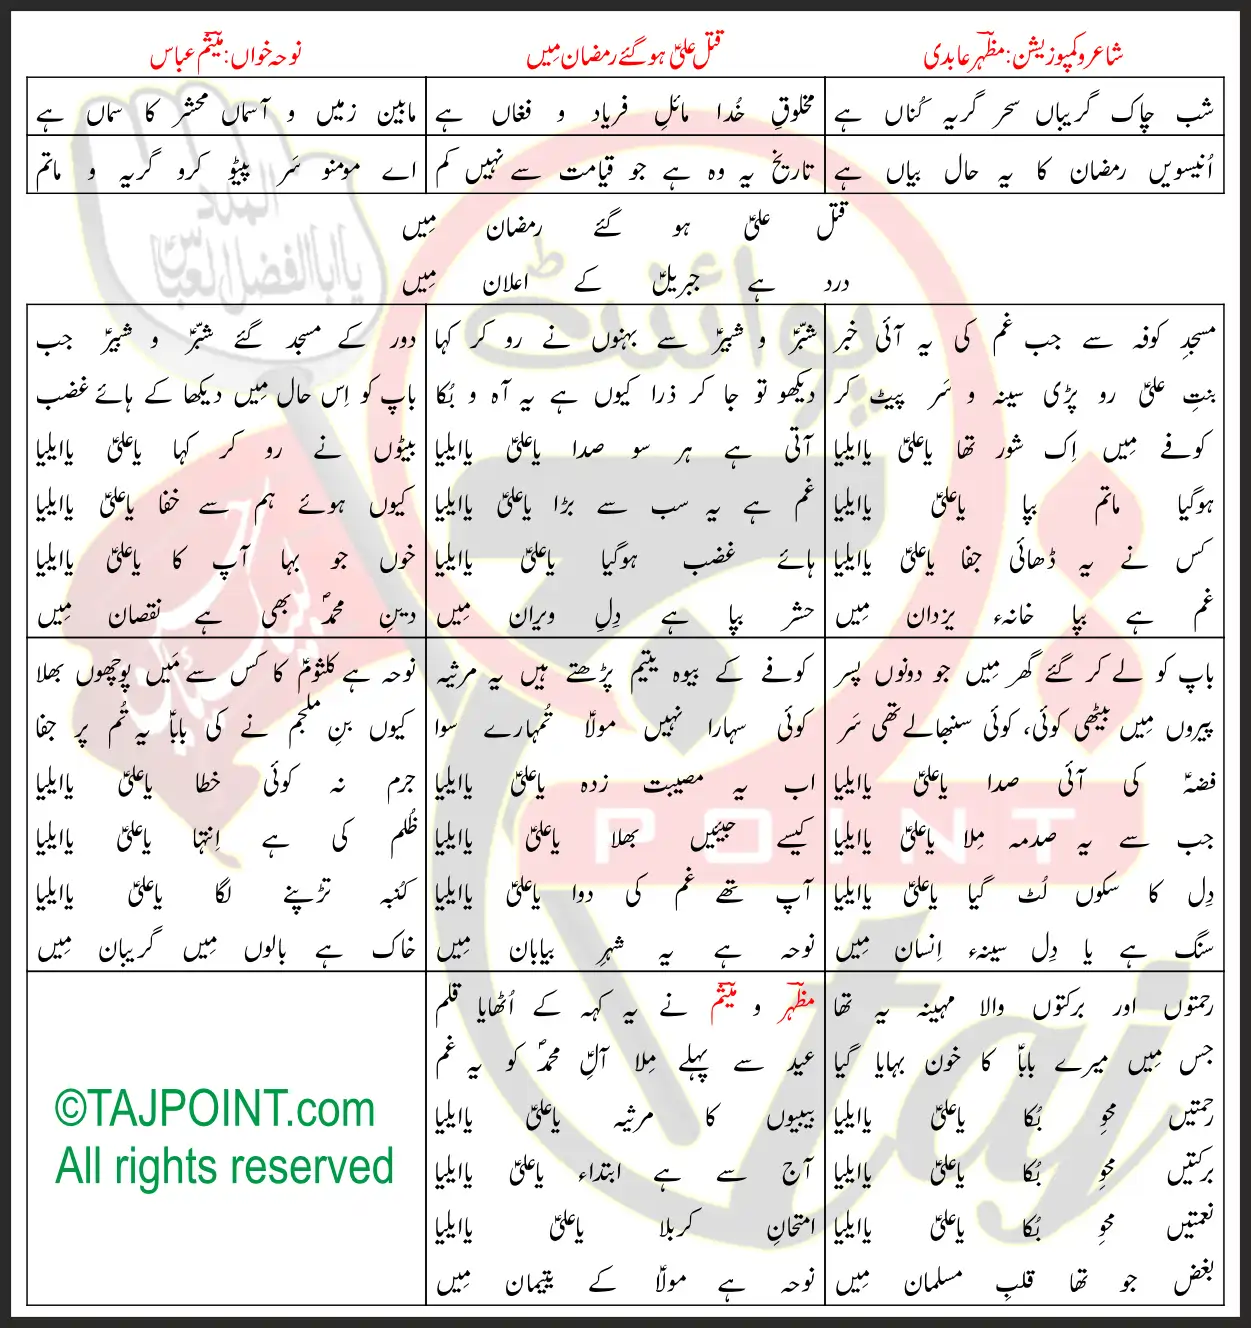 شاعر و کمپوزیشن: مظہر عابدی
قتل علیؑ ہو گئے رمضان مِیں
نوحہ خواں: میثم عباس
شب چاک گریباں سحر گریہ کُناں ہے
مخلوقِ خُدا مائلِ فریاد و فغاں ہے
مابین زمیں و آسماں محشر کا سماں ہے
اُنیسویں رمضان کا یہ حال بیاں ہے
تاریخ یہ وہ ہے جو قیامت سے نہیں کم
اے مومنو سَر پیٹو کرو گریہ و ماتم
قتل علیؑ ہو گئے رمضان مِیں
درد ہے جبریلؑ کے اعلان مِیں
مسجدِ کوفہ سے جب غم کی یہ آئی خبر
بنتِ علیؑ رو پڑی سینہ و سَر پیٹ کر
کوفے مِیں اِک شور تھا یاعلیؑ یاایلیا
ہوگیا ماتم بپا یاعلیؑ یاایلیا
کس نے یہ ڈھائی جفا یاعلیؑ یاایلیا
غم ہے بپا خانہء یزدان مِیں
شبّرؑ و شبیرؑ سے بہنوں نے رو کر کہا
دیکھو تو جا کر ذرا کیوں ہے یہ آہ و بُکا
آتی ہے ہر سو صدا یاعلیؑ یاایلیا
غم ہے یہ سب سے بڑا یاعلیؑ یاایلیا
ہائے غضب ہوگیا یاعلیؑ یاایلیا
حشر بپا ہے دِلِ ویران مِیں
دور کے مسجد گئے شبّرؑ و شبیرؑ جب
باپ کو اِس حال مِیں دیکھا کے ہائے غضب
بیٹوں نے رو کر کہا یاعلیؑ یاایلیا
کیوں ہوئے ہم سے خفا یاعلیؑ یاایلیا
خوں جو بہا آپ کا یاعلیؑ یاایلیا
دینِ محمدؐ بھی ہے نقصان مِیں
باپ کو لے کر گئے گھر مِیں جو دونوں پسر
پیروں مِیں بیٹھی کوئی، کوئی سنبھالے تھی سَر
فضہؑ کی آئی صدا یاعلیؑ یاایلیا
جب سے یہ صدمہ مِلا یاعلیؑ یاایلیا
دِل کا سکوں لُٹ گیا یاعلیؑ یاایلیا
سنگ ہے یا دِل سینہء اِنسان مِیں
کوفے کے بیوہ یتیم پڑھتے ہیں یہ مرثیہ
کوئی سہارا نہیں مولاؑ تُمہارے سوا
اب یہ مصیبت زدہ یاعلیؑ یاایلیا
کیسے جیئیں بھلا یاعلیؑ یاایلیا
آپ تھے غم کی دوا یاعلیؑ یاایلیا
نوحہ ہے یہ شہرِ بیابان مِیں
نوحہ ہے کلثومؑ کا کس سے مَیں پوچھوں بھلا
کیوں بنِ ملجم نے کی باباؑ یہ تُم پر جفا
جرم نہ کوئی خطا یاعلیؑ یاایلیا
ظُلم کی ہے اِنتہا یاعلیؑ یاایلیا
کُنبہ تڑپنے لگا یاعلیؑ یاایلیا
خاک ہے بالوں مِیں گریبان مِیں
رحمتوں اور برکتوں والا مہینہ یہ تھا
جس مِیں میرے باباؑ کا خون بہایا گیا
رحمتیں محوِ بُکا یاعلیؑ یاایلیا
برکتیں محوِ بُکا یاعلیؑ یاایلیا
نعمتیں محوِ بُکا یاعلیؑ یاایلیا
بغض جو تھا قلبِ مسلمان مِیں
مظہر و میثم نے یہ کہہ کے اُٹھایا قلم
عید سے پہلے مِلا آلِ محمدؐ کو یہ غم
بیبیوں کا مرثیہ یاعلیؑ یاایلیا
آج سے ہے ابتداء یاعلیؑ یاایلیا
امتحانِ کربلا یاعلیؑ یاایلیا
نوحہ ہے مولاؑ کے یتیمان مِیں
©TAJPOINT.com
All rights reserved
پوائنٹ
POINT
taj
یاابالفضل العباس